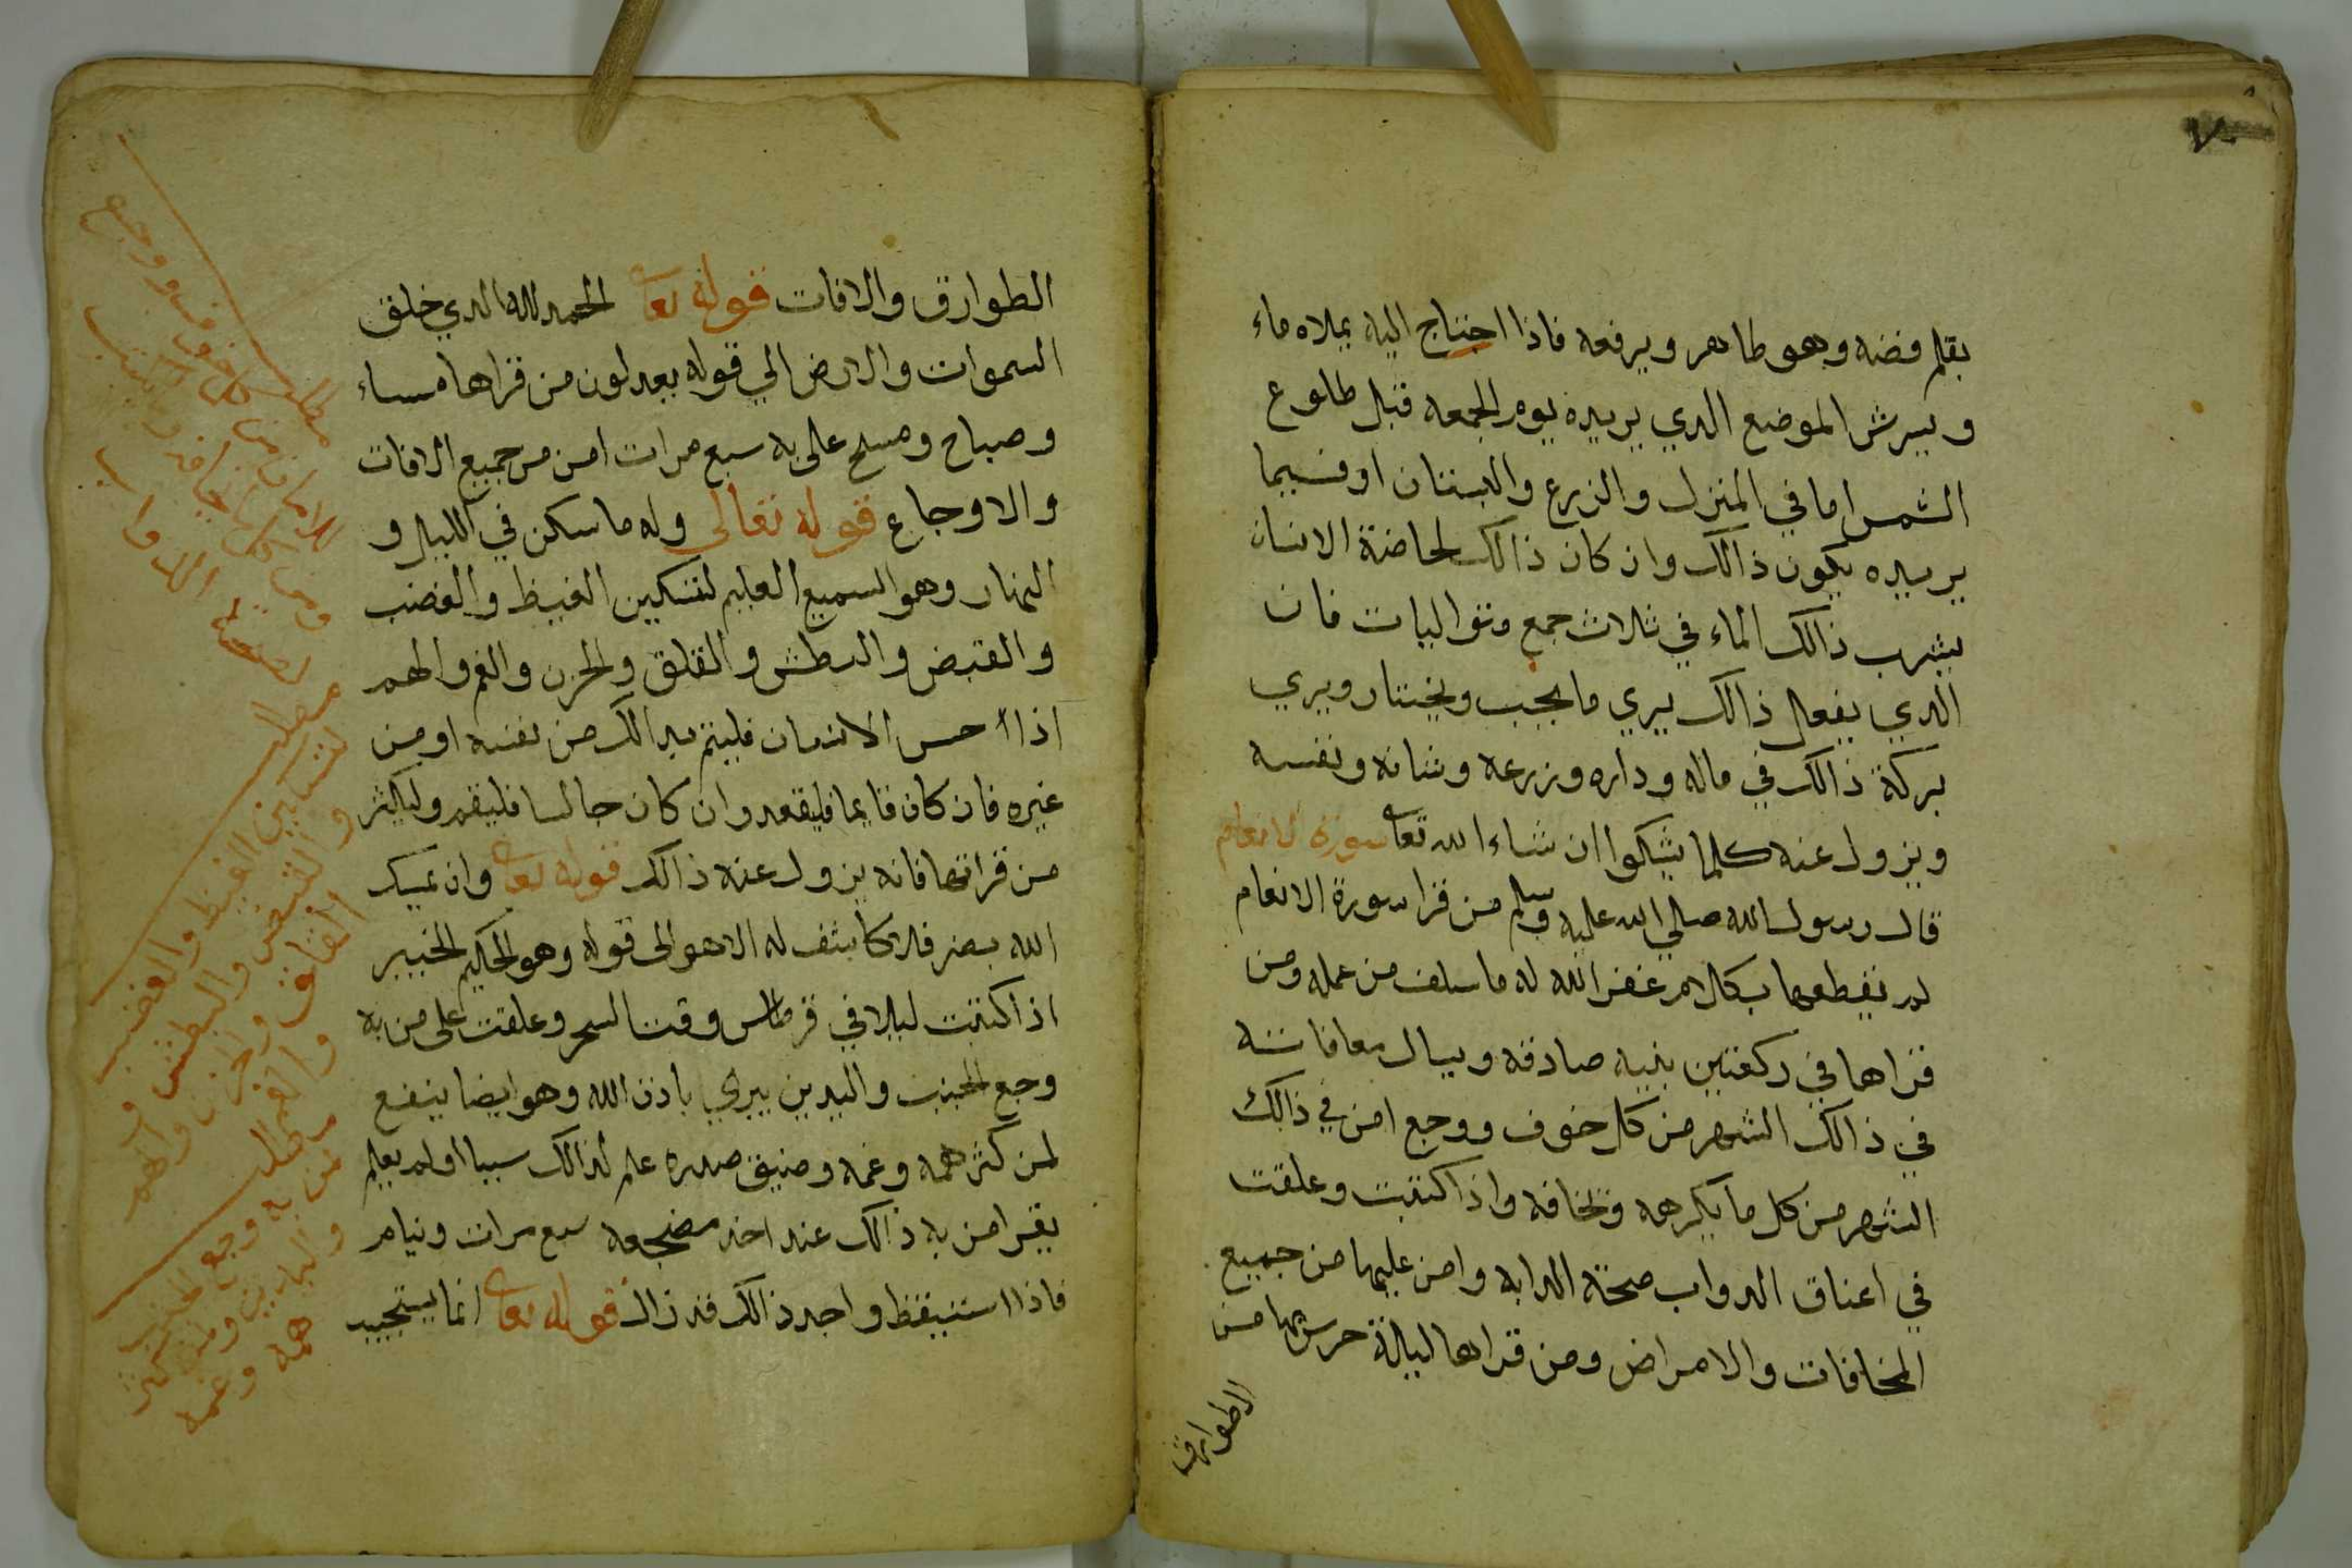 بقلم فضه وهو طاهر ويرفعه فاذا احتاج اليه يملاه ماء
ويرش الموضع الدي يريده يوم الجمعه قبل طلوع
الشمس اما في المنزل والزرع والبستان او فيما
يريده يكون ذالك وان كان ذالك لحاضة الانسان
يشرب ذالك الماء في ثلاث جمع متواليات فان
الدي يفعل ذالك يري ما يحب ويختار ويري
بركة ذالك في ماله وداره وزرعه وشانه ونفسه
ويزول عنه كلما يشكوا ان شاء الله تعا سورة الانعام
قال رسول الله صلي الله عليه وسلم من قرا سورة الانعام
لم يقطعها بكلام غفر الله له ما سلف من عمله ومن
قراها في ركعتين بنيه صادقه ويسال معافاته
في ذالك الشهر من كل خوف ووجع امن في ذالك
الشهر من كل ما يكرهه وتخافه واذا كتبت وعلقت
في اعناق الدواب صحة الدابه وامن عليها من جميع
المخافات والامراض ومن قراها ليلة حرس بها من
الطوارق
الطوارق والافات قوله تعا الحمد لله الدي خلق
السموات والارض الي قوله يعدلون من قراها مساء
وصباح ومسح على به سبع مرات امن من جميع الافات
والاوجاع قوله تعالى وله ما سكن في الليل و
النهار وهو السميع العليم لتسكين الغيظ والغضب
والقبض والبطش والقلق والحزن والغم والهم
اذا احس الانسان بذالك من نفسه او من
غيره فان كان قايما فليقعد وان كان جالسا فليقم وليكثر
من قراتها فانه يزول عنه ذالك قوله تعا وان يمسك
الله بضر فلا كاشف له الا هو الى قوله وهو الحكيم الخبير
اذا كتبت ليلا في قرطاس وقت السحر وعلقت على من به
وجع الجنب واليدين يبري باذن الله وهو ايضا ينفع
لمن كثر همه وغمه وضيق صدره علم لذالك سببا او لم يعلم
يقرا من به ذالك عند اخذ مضجعه سبع مرات وينام
فاذا استيقظ واجد ذالك قد زال قوله تعا انما يستجيب
مطلب
للامان من كل خوف ووجع
الدواب
مطلب
لتسكين الغيظ والغضب
والقبض والبطش و
القلق والحزن والهم
والغم
مطلب
لمن به وجع الجنب
واليدين ومن كثر
همه وغمه